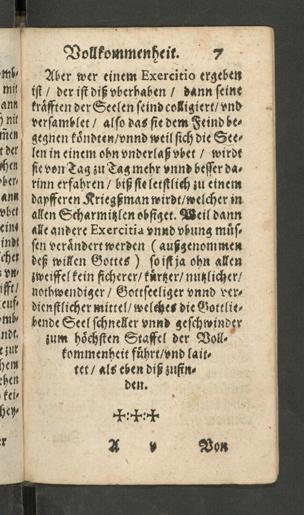 Vollkommenheit. 7
Aber wer einem Exercitio ergeben
ist / der ist diß vberhaben / dann seine
kräfften der Seelen seind colligiert / vnd
versamblet / also das sie dem Feind be-
gegnen köndten / vnnd weil sich die See-
len in einem ohn vnderlaß vbet / wirdt
sie von Tag zu Tag mehr vnnd besser da-
rinn erfahren / biß sie letstlich zu einem
dapfferen Kriegßman wirdt / welcher in
allen Scharmitzlen obsiget. Weil dann
alle andere Exercitia vnnd vbung müs-
sen verändert werden ( außgenommen
deß willen Gottes ) so ist ja ohn allen
zweiffel kein sicherer / kürtzer / nutzlicher /
nothwendiger / Gottseeliger vnnd ver-
dienstlicher mittel / welches die Gottlie-
bende Seel schneller vnnd geschwinder
zum höchsten Staffel der Voll-
kommenheit führt / vnd lait-
tet / als eben diß zufin-
den.
A v Von